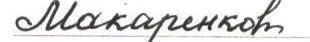 Макаренков